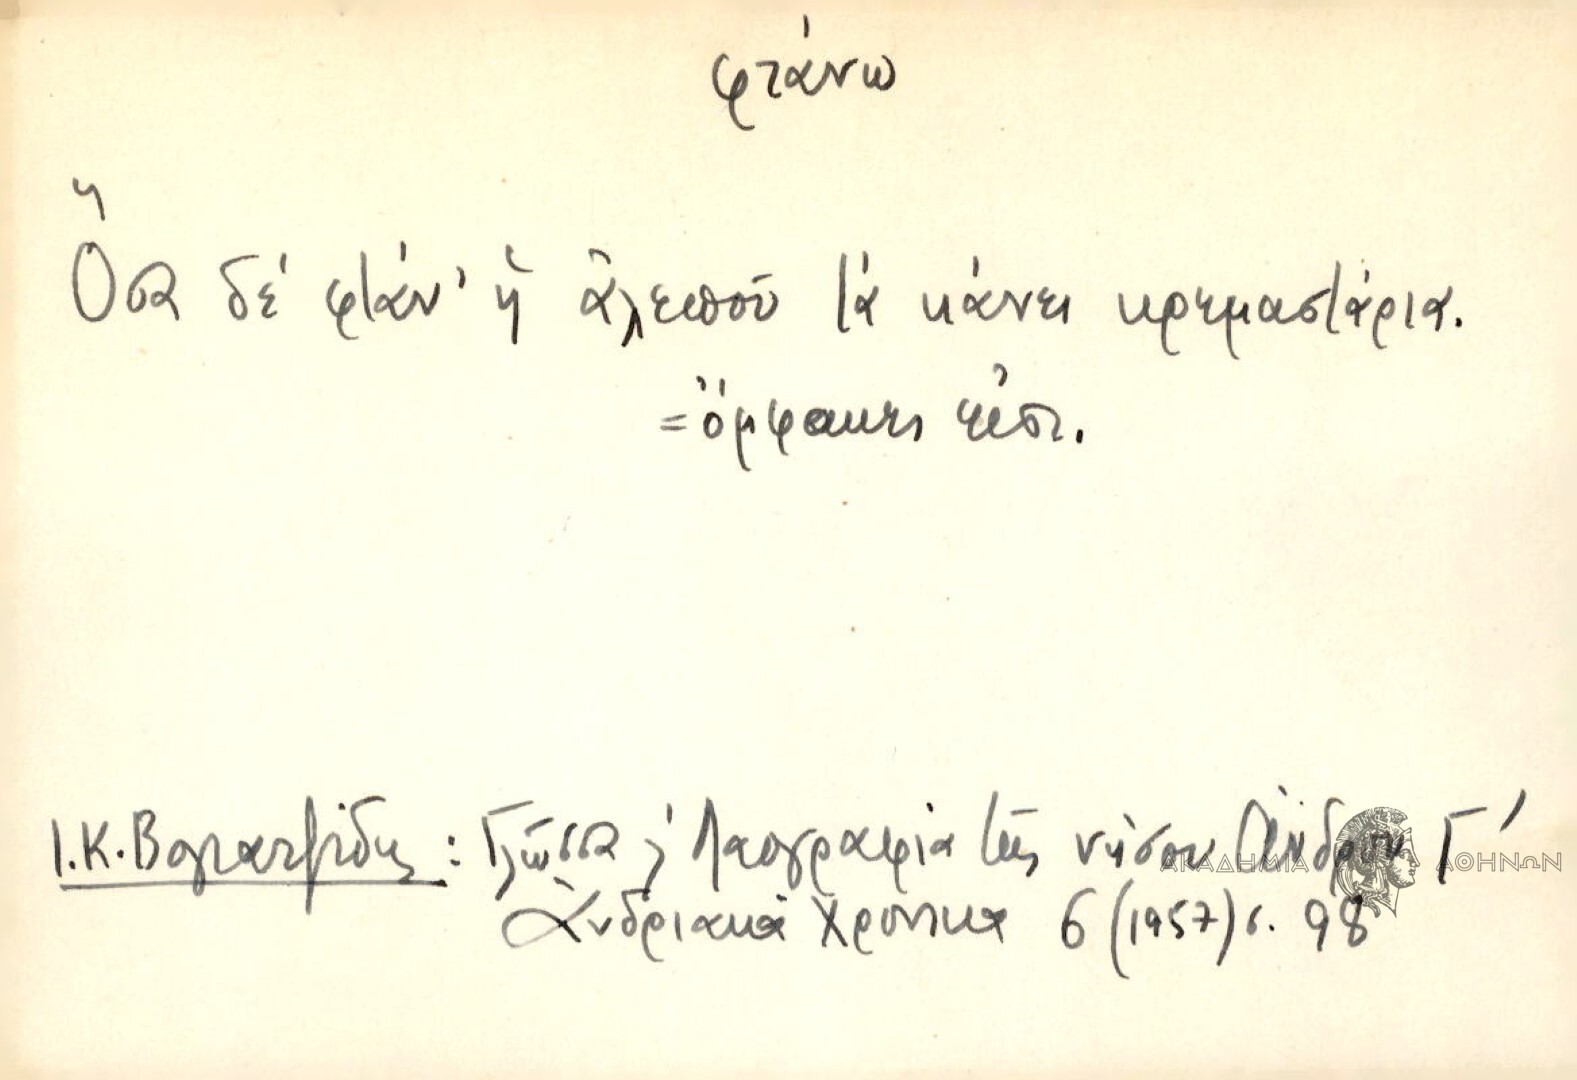 φτάνω
Ὅσα δέ φτάν' ἡ ἀλεπού τά κάνει κρεμαστάρια.
= ὄμφακες εἰσι.
Ι. Κ. Βογιατζίδης : Γλῶσσα & Λαογραφία τῆς νήσου Ἄνδρου Γ'
Ἀνδριακά Χρονικά 6 (1957) σ. 98
ΑΚΑΔΗΜΙΑ ΑΘΗΝΩΝ